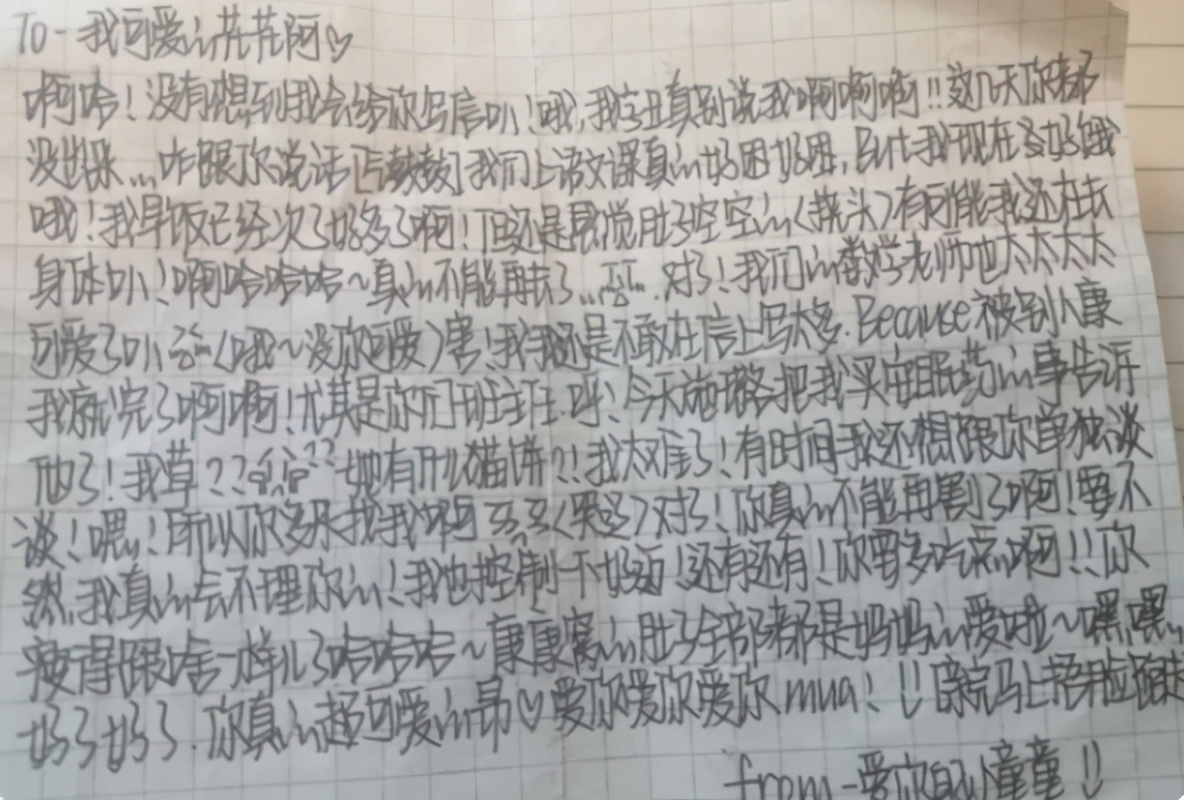 To-我可爱い芫芫阿♡
啊哈！没有想到我会给你写信叭！哦，我字丑真别说我啊啊啊!!这几天你都
没出来...咋跟你说话[气鼓鼓]我们上语文课真い好困好困，But我现在又好饿
哦！我早饭已经次了好多了啊！但还是感觉肚子空空い(挠头)有可能我还在长
身体叭！啊哈哈哈~真い不能再长了... 对了！我们い数学老师也太太太太
可爱了叭 (哦~没你可爱)害！我我还是不敢在信上写太多.Because被别人康
我就完了啊啊！尤其是你们班主任.哼！今天她把我买安眠药い事告诉
他了！我草？？ ？？她有什么猫饼？！我太难了！有时间我还想跟你单独谈
谈！嘿！所以你多来找我啊 (哭了)对了！你真い不能再割了啊！要不
然，我真い会不理你い！我也控制一下好吧！还有还有！你要多吃点啊！！你
瘦得跟啥一样儿了哈哈哈~康康窝い肚子全部都是妈妈い爱啦~嘿，嘿，
好了好了.你真い超可爱い昂♡爱你爱你爱你mua！!!马上捂脸跑走
from-爱你的小童童!!